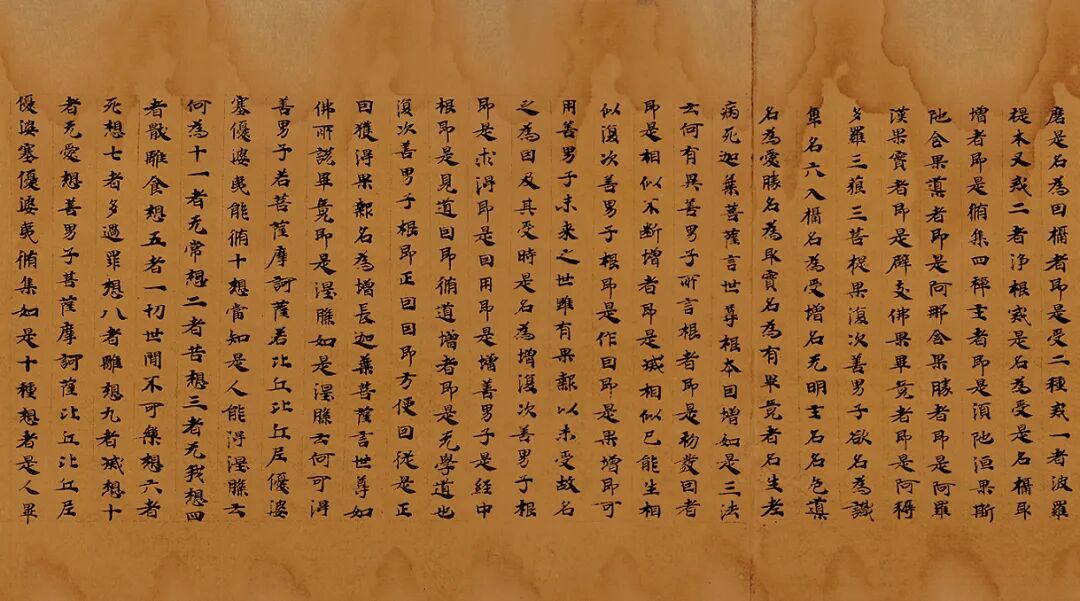 磨是名為因攝者即是受二種戒一者波羅
提木叉戒二者淨根戒是名為受是名攝取
增者即是脩集四禪主者即是湏陁洹果斯
陁含果導者即是阿那含果勝者即是阿羅
漢果實者即是辟支佛果畢竟者即是阿耨
多羅三藐三菩提果復次善男子欲名為識
集名六入攝名為受增名无明主名名色導
名為愛勝名為取實名為有畢竟者名生老
病死迦葉菩薩言世尊根本因增如是三法
云何有異善男子所言根者即是初發因者
即是相似不斷增者即是滅相似已能生相
似復次善男子根即是作因即是果增即可
用善男子未來之世雖有果報以未受故名
之為因及其受時是名為增復次善男子根
即是求得即是因用即是增善男子是經中
根即是見道因即脩道增者即是无學道也
復次善男子根即正因因即方便因從是正
因獲得果報名為增長迦葉菩薩言世尊如
佛所說畢竟即是涅槃如是涅槃云何可得
善男子若菩薩摩訶薩若比丘比丘尼優婆
塞優婆夷能脩十想當知是人能得涅槃云
何為十一者无常想二者苦想三者无我想四
者猒離食想五者一切世間不可樂想六者
死想七者多過罪想八者離想九者滅想十
者无愛想善男子菩薩摩訶薩比丘比丘尼
優婆塞優婆夷脩集如是十種想者是人畢